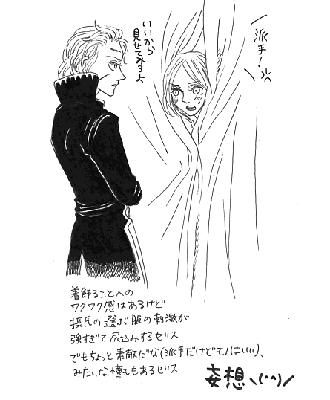 派手!
いいから
見せてみろよ
着飾ることへの
ワクワク感はあるけど
摂氏の選ぶ服の刺激が
強すぎて尻込みするゼリス
でもちょっと素敵だな(派手だけど
みたいな
もあるゼリス
妄想ヽ(^^)ノ